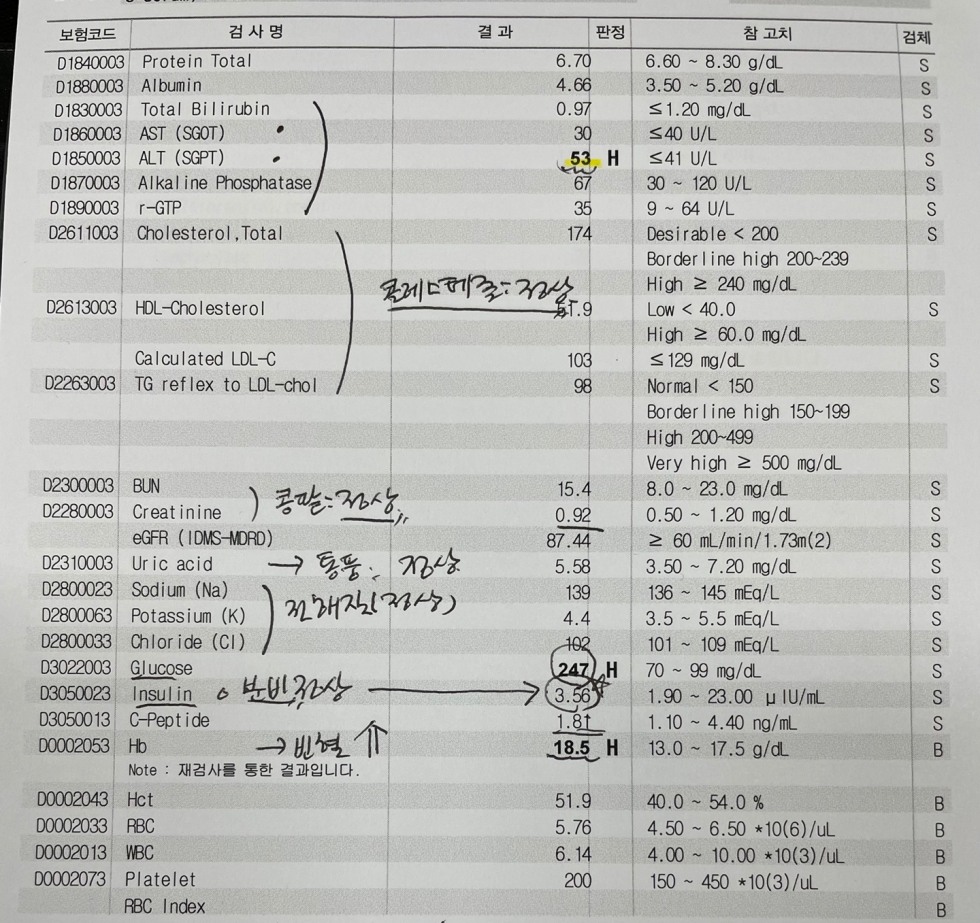 보험코드 검 사 명 결 과 판정 참 고치 검체
D1840003 Protein Total 6.70 6.60 ~ 8.30 g/dL S
D1880003 Albumin 4.66 3.50 ~ 5.20 g/dL S
D1830003 Total Bilirubin 0.97 ≤1.20 mg/dL S
D1860003 AST (SGOT) 30 ≤40 U/L S
D1850003 ALT (SGPT) 53 H ≤41 U/L S
D1870003 Alkaline Phosphatase 67 30 ~ 120 U/L S
D1890003 r-GTP 35 9 ~ 64 U/L S
D2611003 Cholesterol,Total 174 Desirable < 200 S
Borderline high 200~239
콜레스테롤: 정상 High ≥ 240 mg/dL
D2613003 HDL-Cholesterol 51.9 Low < 40.0 S
High ≥ 60.0 mg/dL
Calculated LDL-C 103 ≤129 mg/dL S
D2263003 TG reflex to LDL-chol 98 Normal < 150 S
Borderline high 150~199
High 200~499
Very high ≥ 500 mg/dL
D2300003 BUN 15.4 8.0 ~ 23.0 mg/dL S
콩팥: 정상
D2280003 Creatinine 0.92 0.50 ~ 1.20 mg/dL S
eGFR (IDMS-MDRD) 87.44 ≥ 60 mL/min/1.73m(2) S
D2310003 Uric acid → 통풍: 정상 5.58 3.50 ~ 7.20 mg/dL S
D2800023 Sodium (Na) 139 136 ~ 145 mEq/L S
D2800063 Potassium (K) 전해질(정상) 4.4 3.5 ~ 5.5 mEq/L S
D2800033 Chloride (Cl) 102 101 ~ 109 mEq/L S
D3022003 Glucose 247 H 70 ~ 99 mg/dL S
D3050023 Insulin 분비정상 → 3.56 1.90 ~ 23.00 μIU/mL S
D3050013 C-Peptide 1.81 1.10 ~ 4.40 ng/mL S
D0002053 Hb → 빈혈 ⇑ 18.5 H 13.0 ~ 17.5 g/dL B
Note : 재검사를 통한 결과입니다.
D0002043 Hct 51.9 40.0 ~ 54.0 % B
D0002033 RBC 5.76 4.50 ~ 6.50 *10(6)/uL B
D0002013 WBC 6.14 4.00 ~ 10.00 *10(3)/uL B
D0002073 Platelet 200 150 ~ 450 *10(3)/uL B
RBC Index B